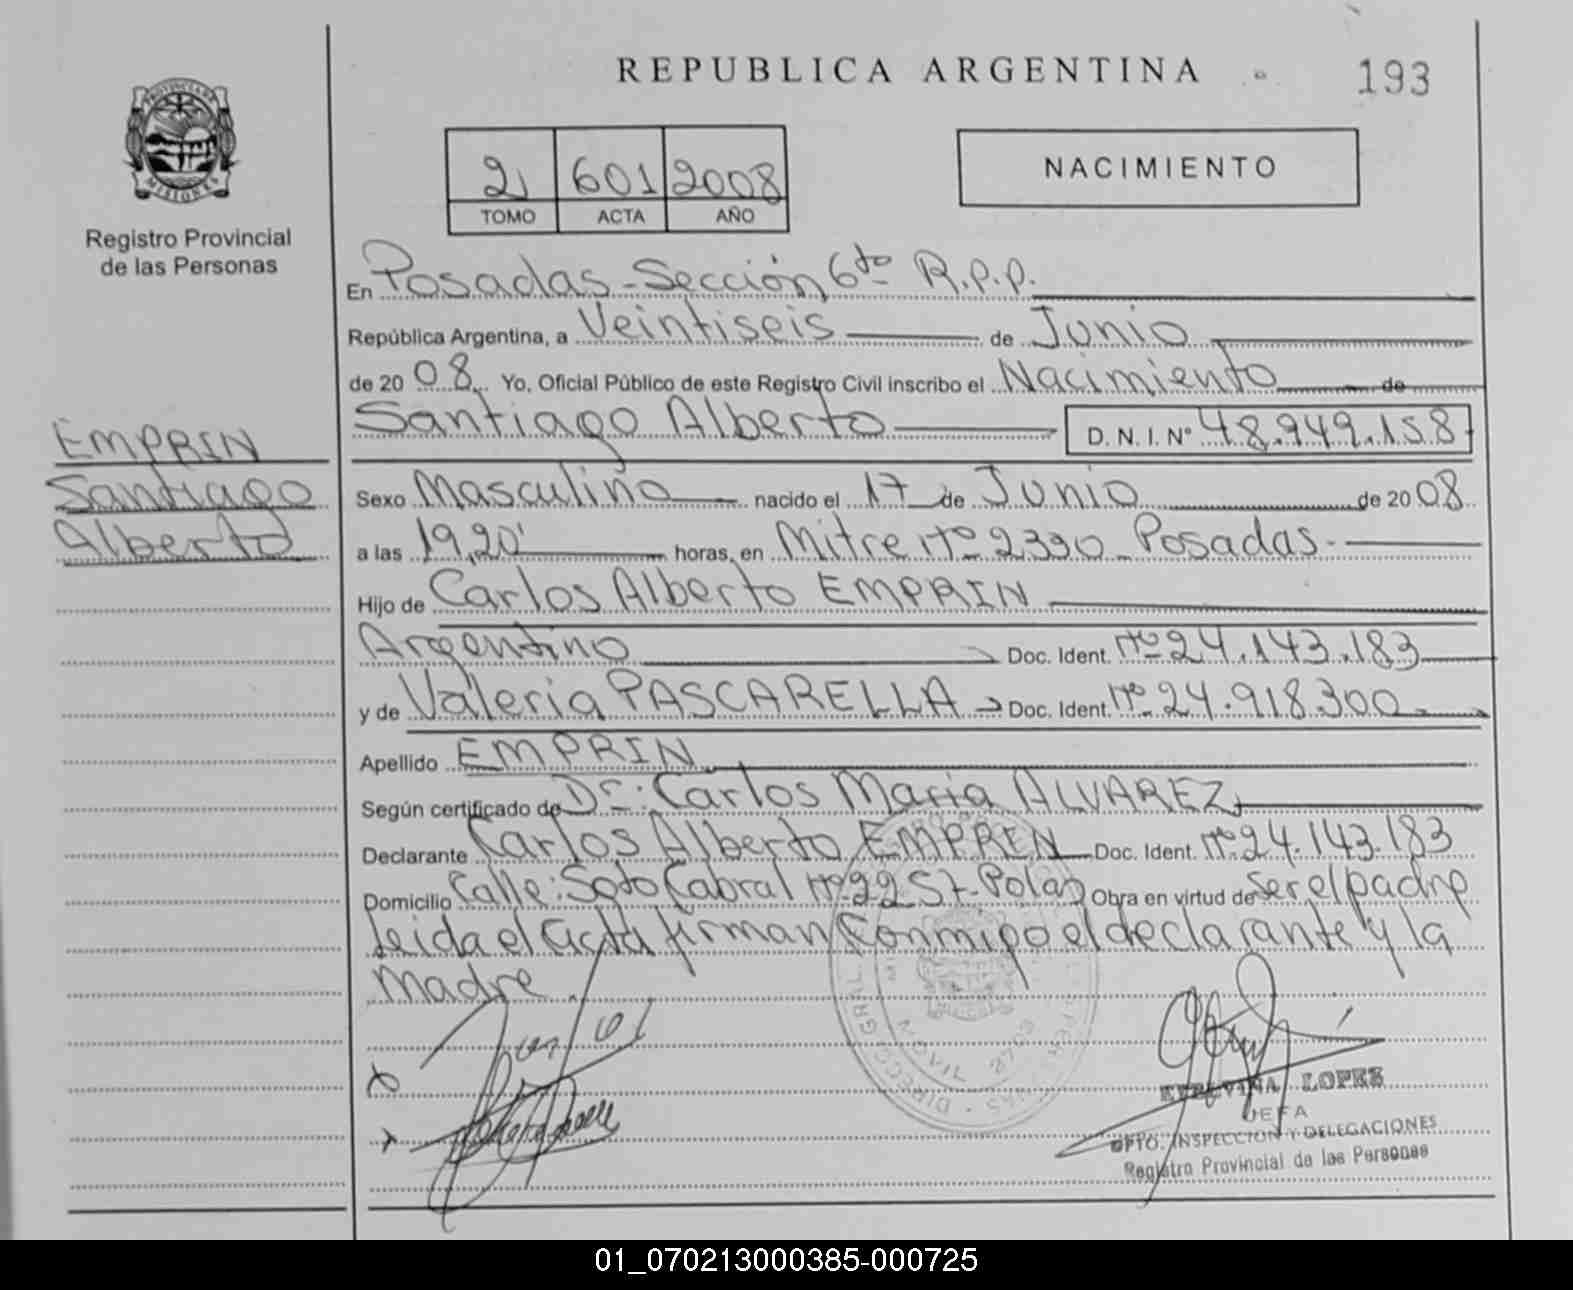 REPUBLICA ARGENTINA
193
PROVINCIA DE
MISIONES
Registro Provincial
de las Personas
2 601 2008
TOMO ACTA AÑO
NACIMIENTO
En Posadas - Sección 6to R.P.P.
República Argentina, a Veintiseis de Junio
de 20 08 Yo, Oficial Público de este Registro Civil inscribo el Nacimiento de
Santiago Alberto D.N.I. Nº 48.949.158
EMPRIN
Santiago
Alberto
Sexo Masculino nacido el 17 de Junio de 20 08
a las 19,20' horas, en Mitre Nº 2390 - Posadas -
Hijo de Carlos Alberto EMPRIN
Argentino Doc. Ident. Nº 24.143.183
y de Valeria PASCARELLA Doc. Ident. Nº 24.918.300
Apellido EMPRIN
Según certificado de Dr: Carlos Maria ALVAREZ
Declarante Carlos Alberto EMPREN Doc. Ident. Nº 24.143.183
Domicilio Calle: Soto Cabral Nº 2257- Obra en virtud de Ser el padre
Leida el acta firman Conmigo el declarante y la
Madre
LOPEZ
JEFA
DPTO. INSPECCION Y DELEGACIONES
Registro Provincial de las Personas
01_070213000385-000725